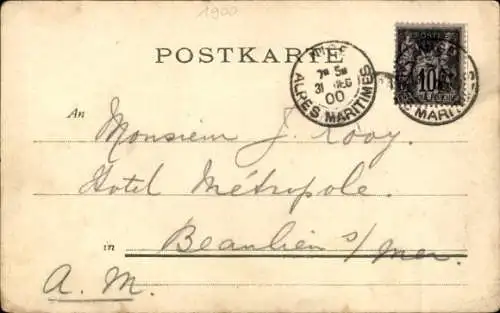 1900
POSTKARTE
NICE
7E 5M
31 DEC
00
ALPES MARITIMES
POSTE
10
MARITIMES
An Monsieur J. Rooy.
Hotel Métropole.
in Beaulieu s/ mer.
A. M.